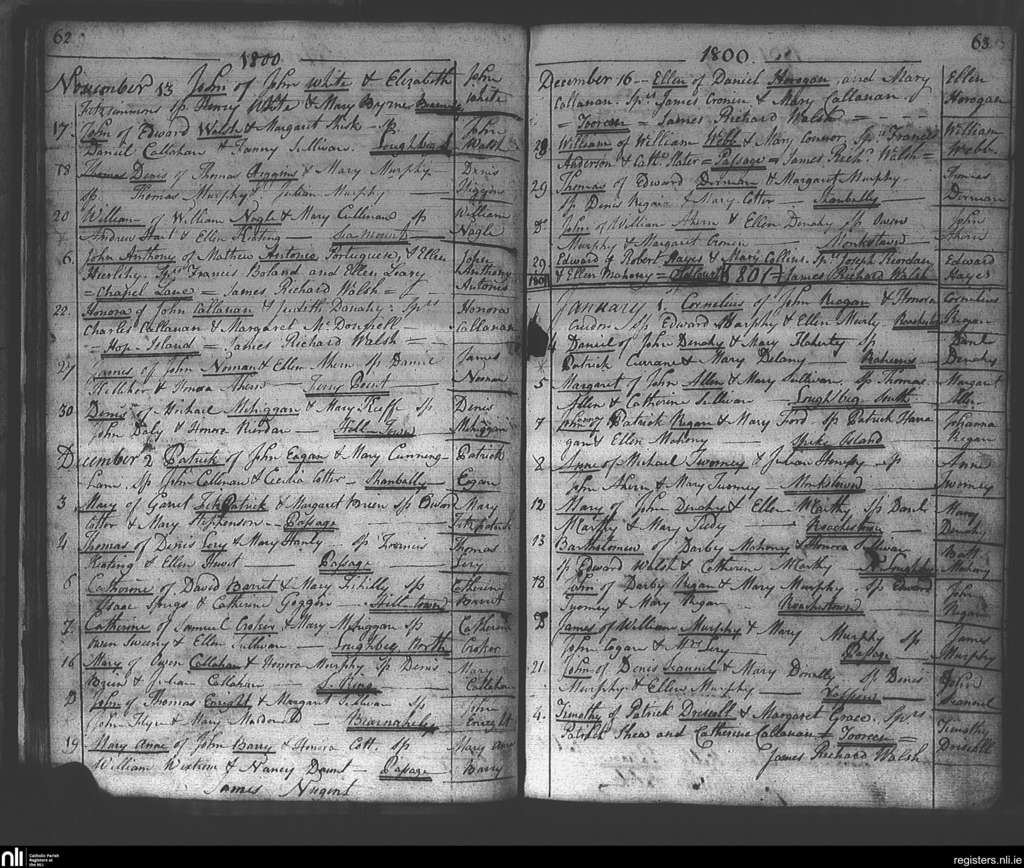 62
1800
November 13 John of John White & Elizabeth
Fitzsimmons sp Henry White & Mary Byrne
John White
17. John of Edward Walsh & Margaret Shisk sp
Daniel Callahan & Fanny Sullivan. Loughbeg
John Walsh
18 Thomas Denis of Thomas Higgins & Mary Murphy
sp. Thomas Murphy & Julian Murphy
Denis Higgins
20 William of William Nagle & Mary Cullinan sp
Andrew Hart & Ellen Keating
William Nagle
6. John Anthony of Mathew Antonio Portuguese & Ellen
Hurlehy. Sprs Francis Boland and Ellen Leary
= Chapel Lane = James Richard Walsh =
John Anthony Antonio
22. Honora of John Callanan & Judith Danahy: Sprs
Charles Callanan & Margaret McDonnell
= Hop-Island = James Richard Walsh =
Honora Callanan
27 James of John Noonan & Ellen Ahern sp Daniel
Kelliher & Honora Ahern Ferry Point
James Noonan
30 Denis of Michael Mehiggan & Mary Keeffe sp
John Daly & Honora Riordan Hill-Town
Denis Mehiggan
December 2 Patrick of John Eagan & Mary Cunning-
ham. sp John Callanan & Cecilia Cotter Shanbally
Patrick Eogan
3 Mary of Garet FitzPatrick & Margaret Breen sp
Cotter & Mary Stephenson Passage
Mary Fitzpatrick
4 Thomas of Denis Lery & Mary Hanly sp Francis
Keating & Ellen Passage
Thomas Lery
6 Catherine of David Barret & Mary sp
Isaac Sprigs & Catherine Geggin Hill-town
Catherine Barret
7. Catherine of Samuel Croker & Mary Mehiggan sp
Owen Sweeny & Ellen Sullivan Loughbeg North
Catherine Croker
16 Mary of Owen Callahan & Honora Murphy sp Denis
Brien & Julian Callahan
Mary Callahan
D John of Thomas Enright & Margaret Sullivan sp
John Flyn & Mary Barnahely
John Enright
19 Mary Anne of John Barry & Honora Cott. sp
William & Nancy Daunt Passage
Mary Anne Barry
James Nugent
63
1800.
December 16 Ellen of Daniel Horogan and Mary
Callanan. Sprs James Cronin & Mary Callanan
= Tooreen = James Richard Walsh =
Ellen Horogan
28 William of William Webb & Mary Connor, Sprs Francis
Anderson & Cathe. Slater = Passage = James Richd. Walsh =
William Webb
29 Thomas of Edward Dorman & Margaret Murphy
sp Denis & Mary Cotter Shanbally
Thomas Dorman
Do John of William Ahern & Ellen Denahy sp Owen
Murphy & Margaret Cronin Monkstown
John Ahern
29 Edward of Robert Hayes & Mary Collins. Sprs Joseph Riordan
& Ellen Mahony = = James Richard Walsh
Edward Hayes
1801 1801
January 1. Cornelius of John Reagan & Honora
Riordon sp Edward Murphy & Ellen
Cornelius Regan
4 Daniel of John Denahy & Mary Flaherty sp
Patrick Currane & Mary Delany
Danl Denahy
5 Margaret of John Allen & Mary Sullivan. sp Thomas
Allen & Catherine Sullivan Loughbeg South
Margaret
7 Johanna of Patrick Regan & Mary Ford sp Patrick Hara
gan & Ellen Mahony Island
Johanna Regan
8 Anne of Michael Twomey & Julian sp
John Ahern & Mary Twomey Monkstown
Anne Twomey
12 Mary of John Denahy & Ellen McCarthy sp Danl
McCarthy & Mary Roachestown
Mary Denahy
13 Bartholomew of Darby Mahony & Honora Sullivan
sp Edward Walsh & Catherine McCarthy
Batt Mahony
18 John of Darby Regan & Mary Murphy sp Edward
Twomey & Mary Regan Roachestown
John Regan
D James of William Murphy & Mary Murphy sp
John Eogan & Mary Lery Passage
James Murphy
21. John of Denis & Mary Donelly sp Denis
Murphy & Ellen Murphy
John
4. Timothy of Patrick Driscoll & Margaret Grace. Sprs
Patrick Shea and Catherine Callanan = Tooreen =
James Richard Walsh
Timothy Driscoll
nli
Catholic Parish
Registers at
the NLI
registers.nli.ie